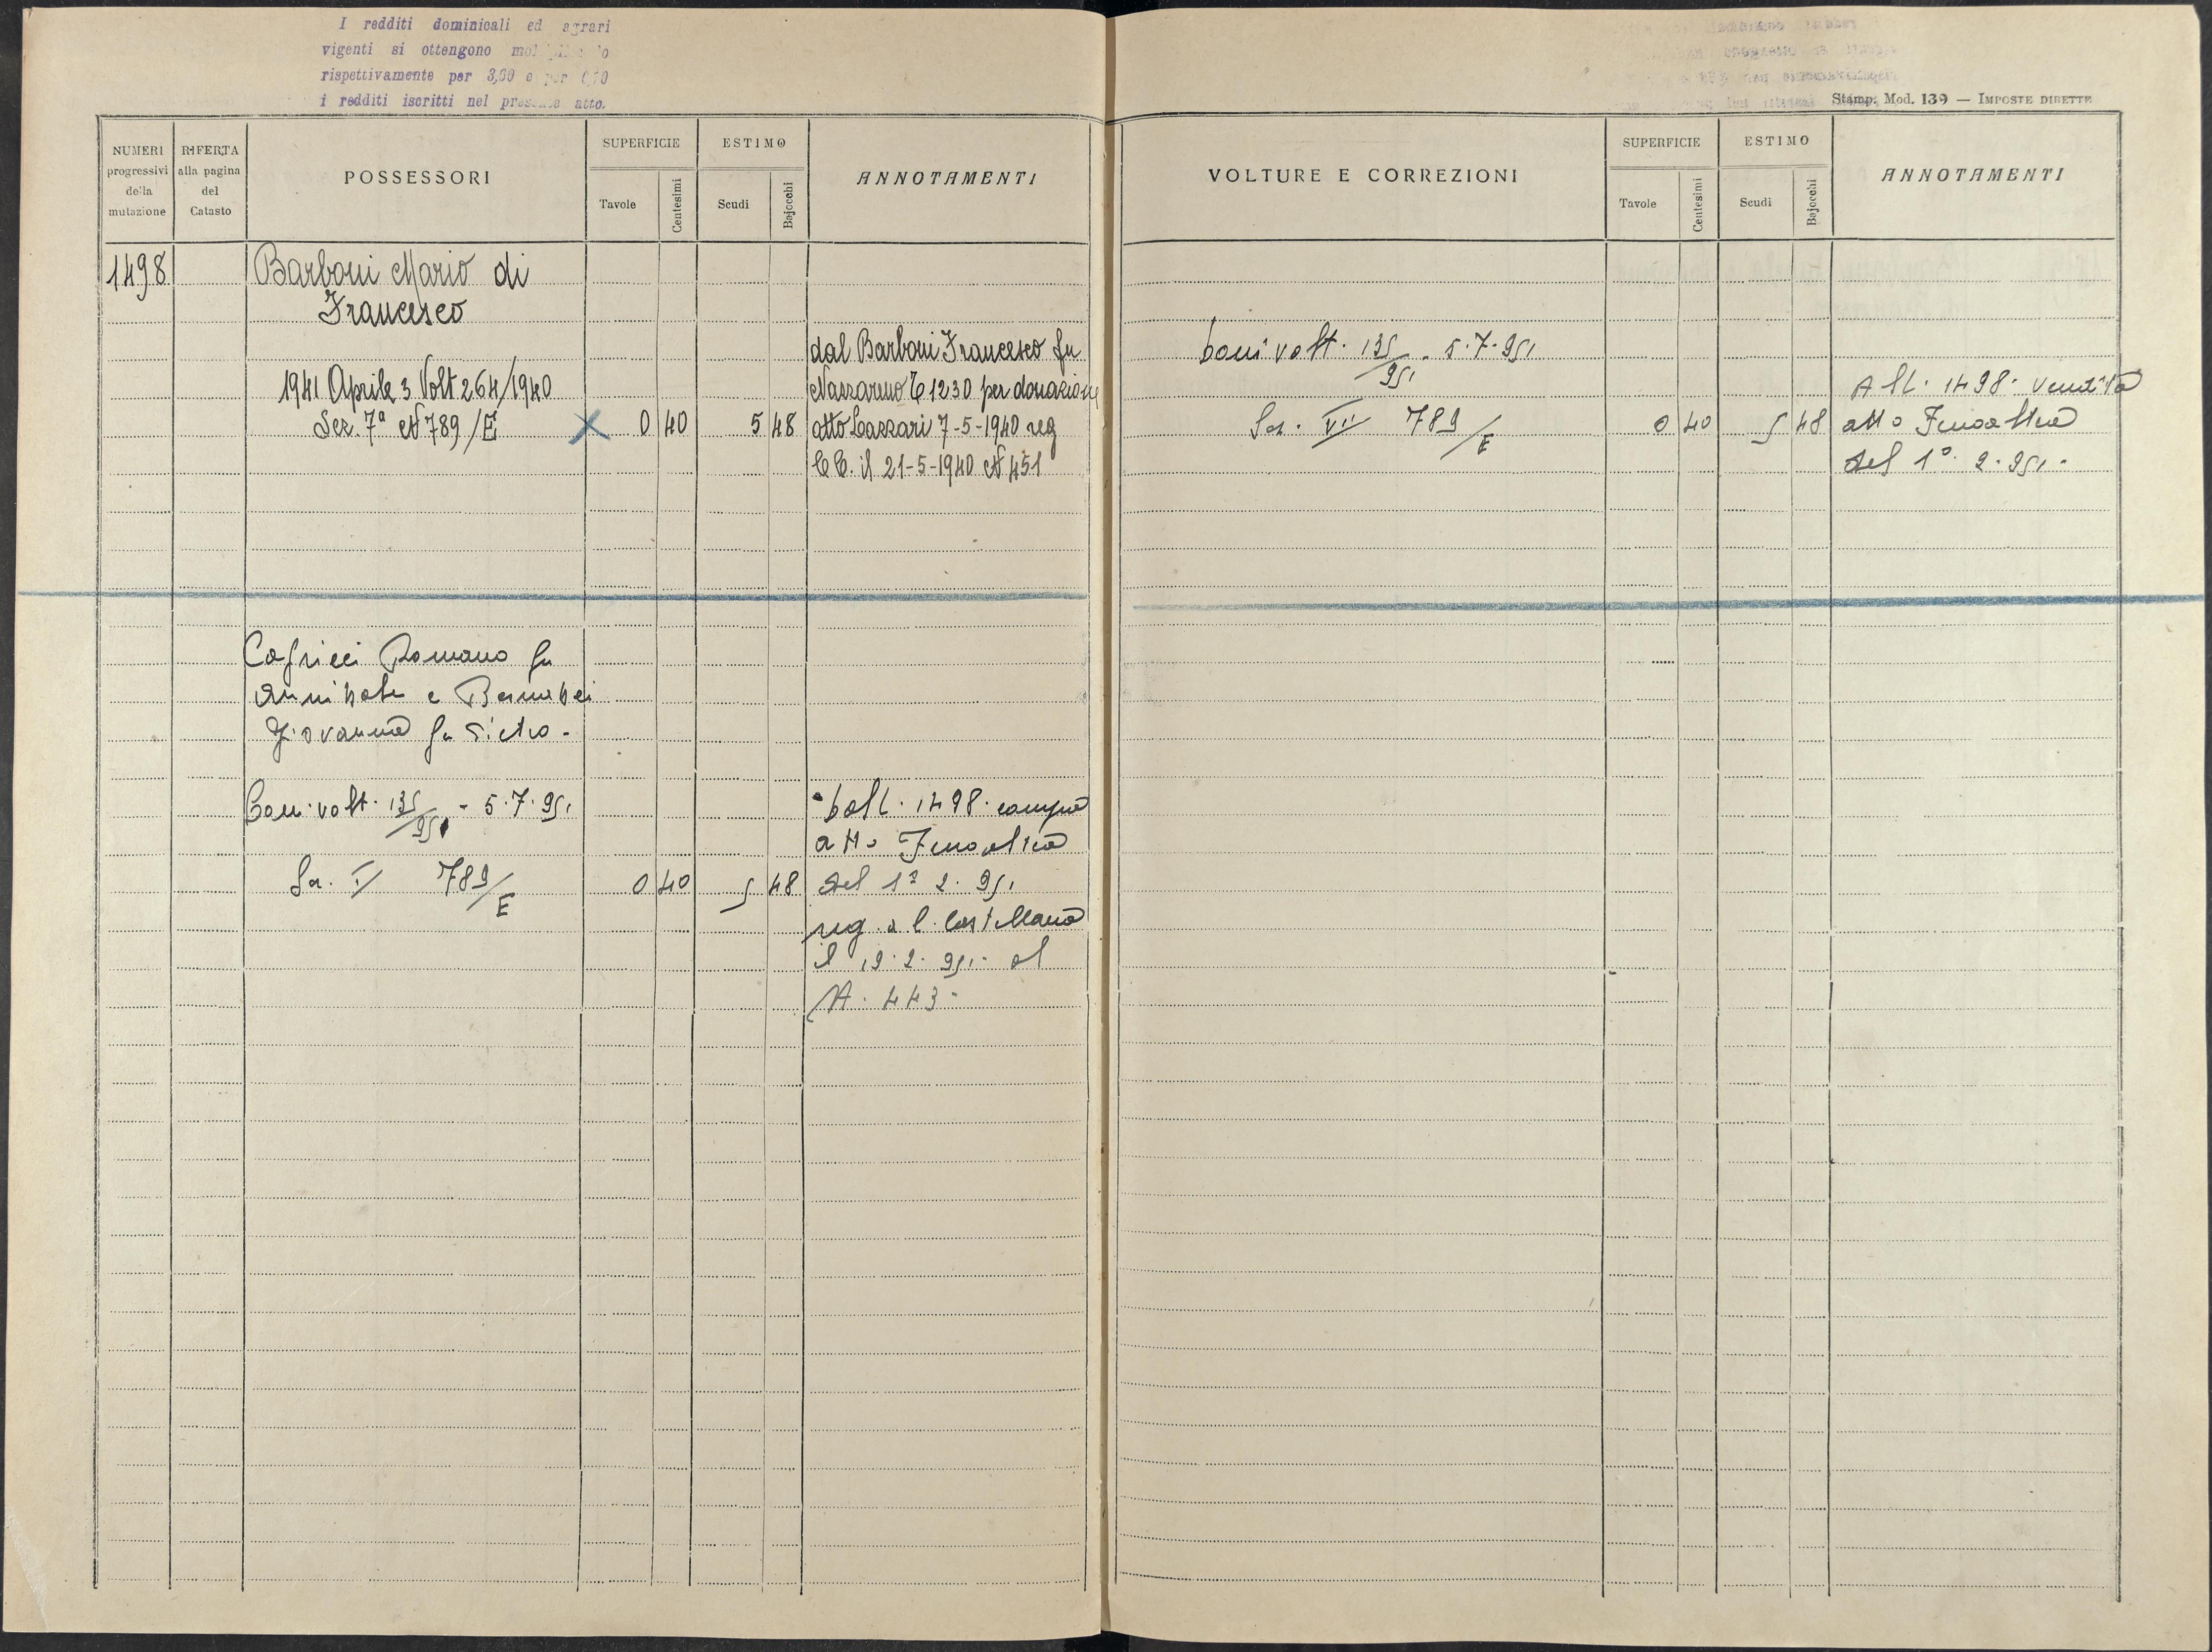 I redditi dominicali ed agrari
vigenti si ottengono
rispettivamente per 3,00 e per
i redditi iscritti nel presente atto.
Stamp. Mod. 139 — IMPOSTE DIRETTE
NUMERI progressivi della mutazione
RIFERTA alla pagina del Catasto
POSSESSORI
SUPERFICIE
Tavole
Centesimi
ESTIMO
Scudi
Bajocchi
ANNOTAMENTI
VOLTURE E CORREZIONI
SUPERFICIE
Tavole
Centesimi
ESTIMO
Scudi
Bajocchi
ANNOTAMENTI
1498 Barboni Mario di
Francesco
dal Barboni Francesco fu
1941 Aprile 3 Volt 264/1940 Nazzareno C 1230 per donazione
Sez. 7a N 789/E X 0 40 5 48 atto 7-5-1940 reg
CC. il 21-5-1940 N 451
volt. 135/951 - 5.7.951
All. 1498. vendita
Sez. VII 789/E 0 40 5 48 atto Fenoaltea
del 1° 2. 951.
Romano fu
Annibale e Bernabei
Giovanna fu Pietro -
volt. 135/951 - 5.7.951
1498. compra
atto Fenoaltea
789/E 0 40 5 48 del 1° 2. 951
reg. a C. Castellana
il 19.2.951. al
N. 443-